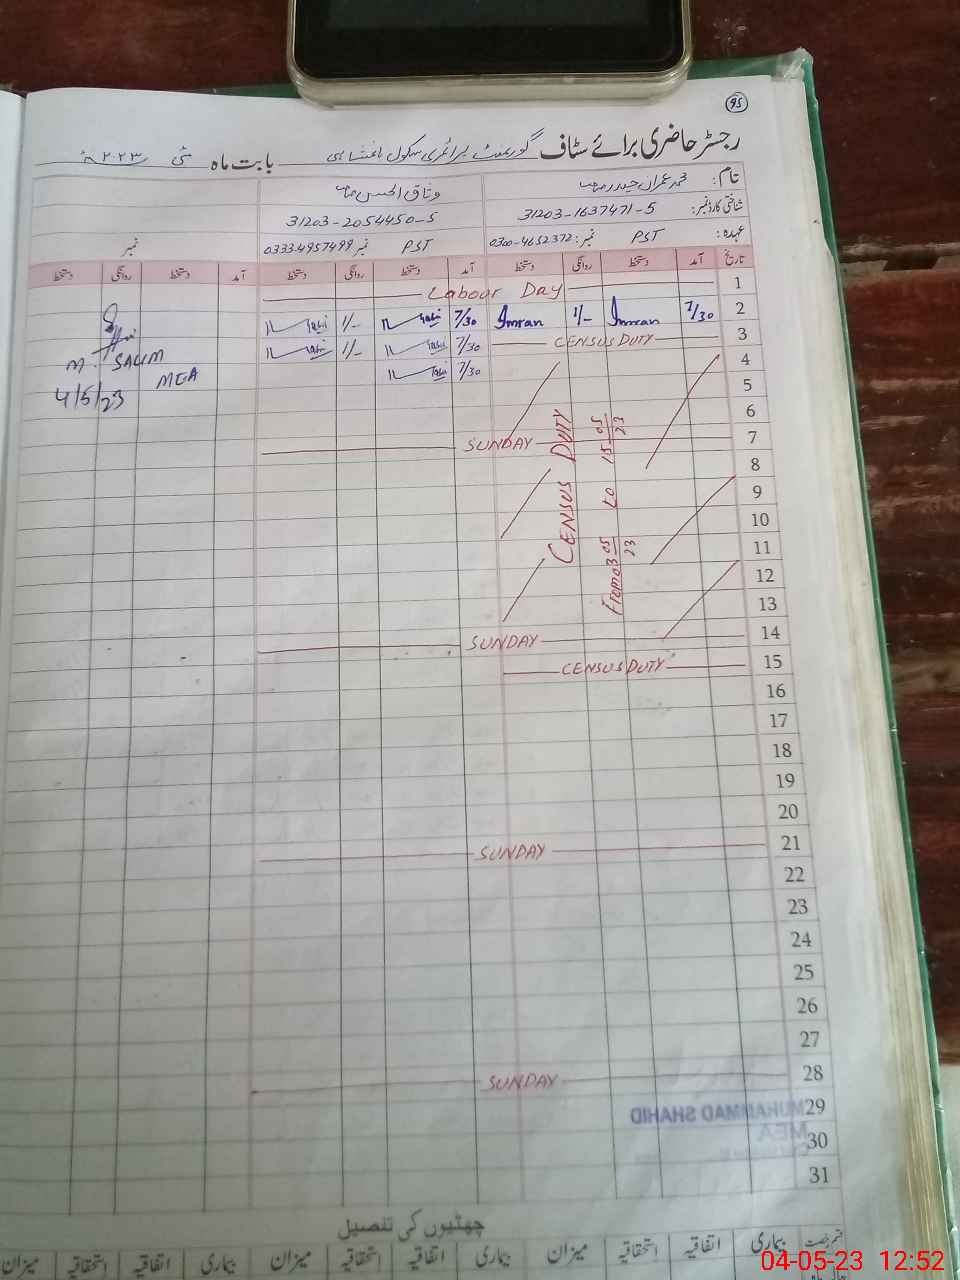 95
رجسٹر حاضری برائے سٹاف گورنمنٹ پرائمری سکول بابت ماہ مئی ۲۰۲۳ء
نام: محمد عمران حیدر صاحب وثاق الحسن صاحب
شناختی کارڈ نمبر: 31203-1637471-5 31203-2054450-5
عہدہ: PST نمبر: 0300-4652372 PST نمبر 03334957499 نمبر
تاریخ آمد دستخط روانگی دستخط آمد دستخط روانگی دستخط آمد دستخط روانگی دستخط
1 Labour Day
2 7/30 Imran 1/- Imran 7/30 1/-
3 CENSUS DUTY 7/30 1/-
4 7/30
M. SALIM
MEA
4/5/23
5
6
7 SUNDAY
CENSUS DUTY
From 03 05/23 to 15 05/23
8
9
10
11
12
13
14 SUNDAY
15 CENSUS DUTY
16
17
18
19
20
21 SUNDAY
22
23
24
25
26
27
28 SUNDAY
29
MUHAMMAD SHAHID
MEA
30
31
چھٹیوں کی تفصیل
قسم رخصت بیماری اتفاقیہ استحقاقیہ میزان بیماری اتفاقیہ استحقاقیہ میزان بیماری اتفاقیہ استحقاقیہ میزان
04-05-23 12:52